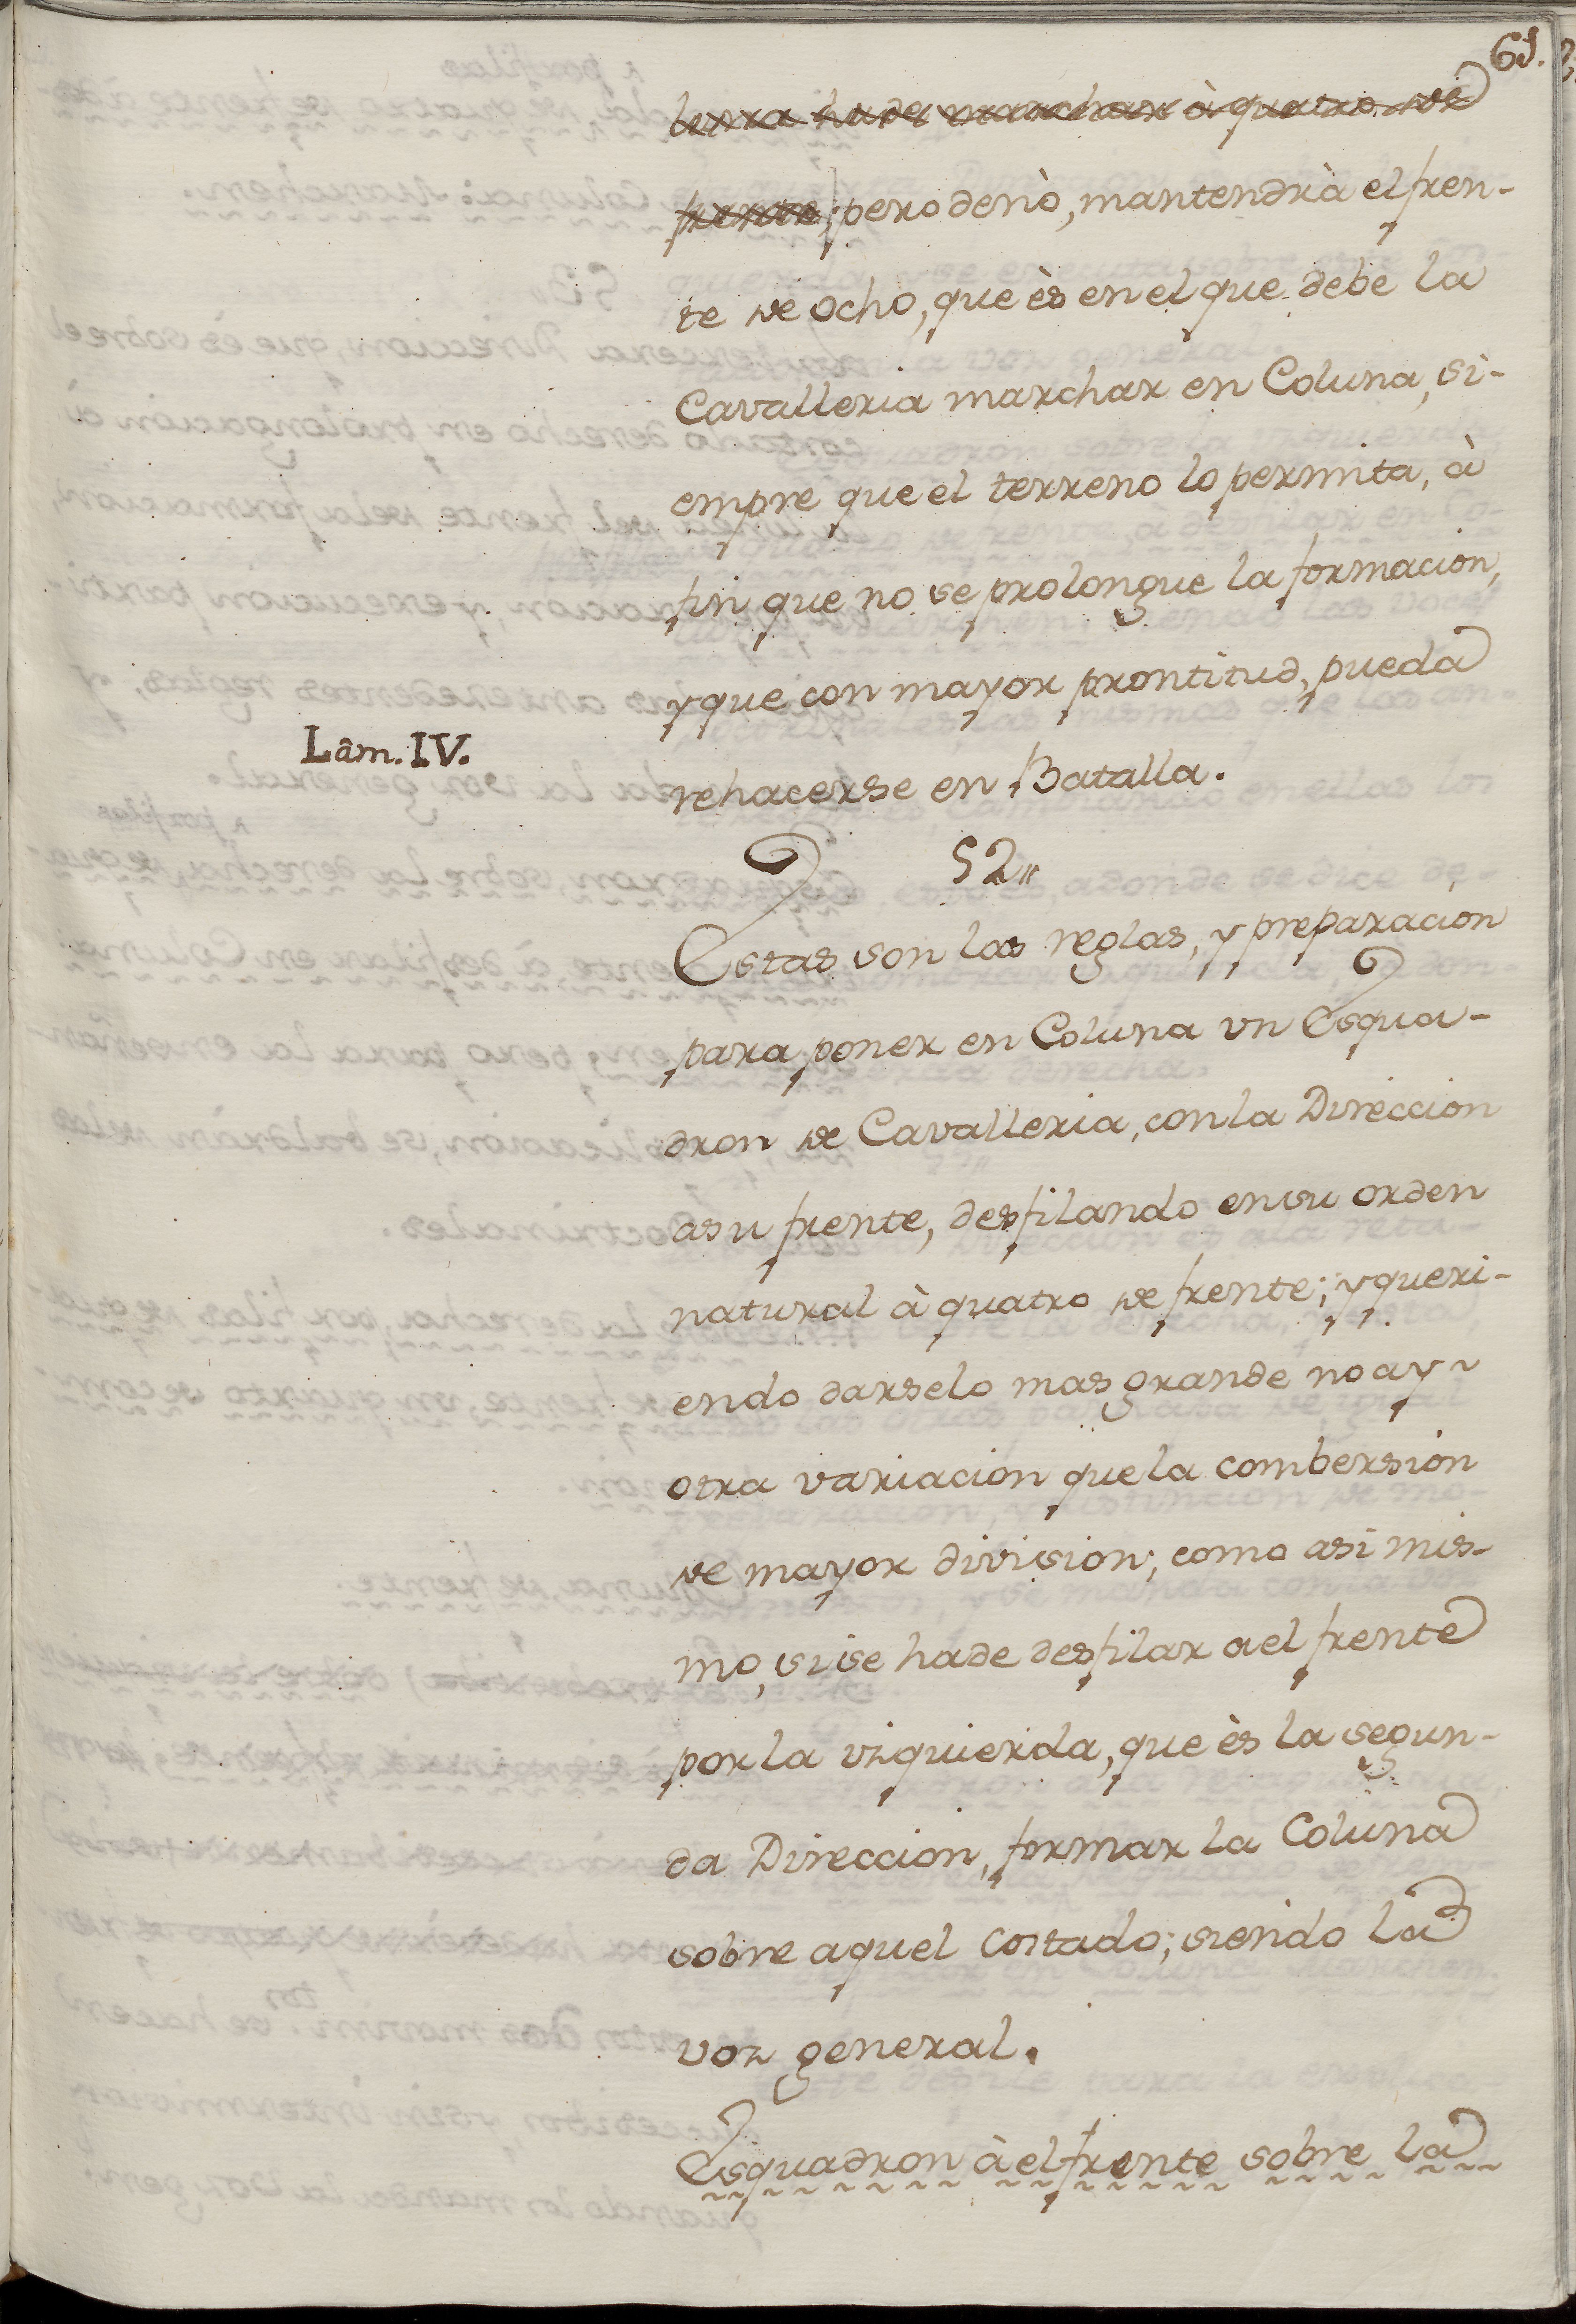 61.
ha de marchar à quatro de
frente; pero denò, mantendrà el fren-
te de ocho, que ès en el que debe la
Cavalleria marchar en Coluna, si-
empre que el terreno lo permita, à
fin que no se prolongue la formacion,
y que con mayor prontitud, pueda
Lâm. IV.
rehacerse en Batalla.
52"
Estas son las reglas, y preparacion
para poner en Coluna vn Esqua-
dron de Cavalleria, con la Direccion
asu frente, desfilando ensu orden
natural à quatro de frente; y queri-
endo darselo mas grande no ay
otra variacion que la combersion
de mayor division; como asi mis-
mo, si se hade desfilar ael frente
por la vzquierda, que ès la segun-
da Direccion, formar la Coluna
sobre aquel costado; siendo la
voz general.
Esquadron à el frente sobre la